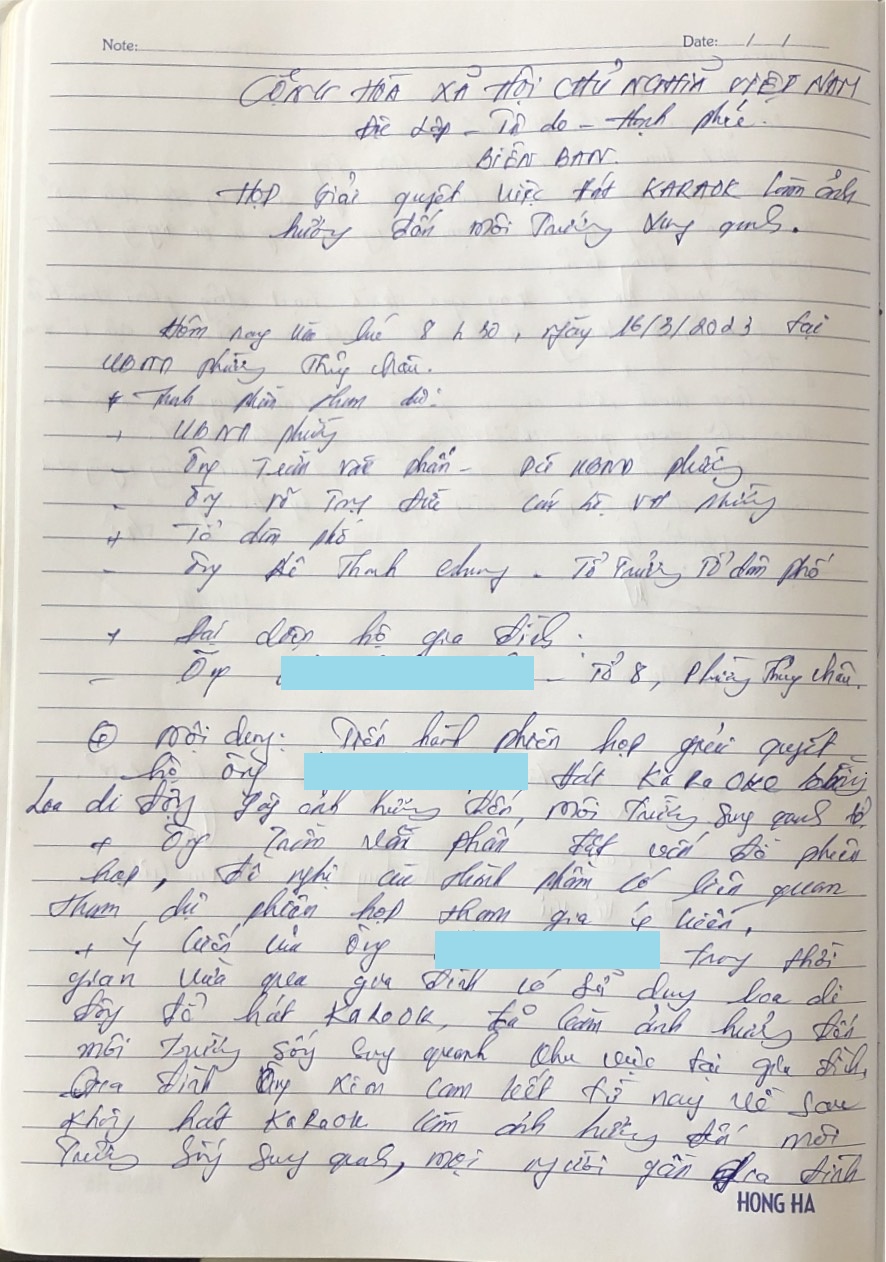 Note: Date: / /
CỘNG HÒA XÃ HỘI CHỦ NGHĨA VIỆT NAM
Độc lập - Tự do - Hạnh phúc.
BIÊN BẢN.
HỌP Giải quyết việc hát KARAOK làm ảnh
hưởng đến môi Trường xung quanh.
Hôm nay vào lúc 8 h 30, ngày 16/3/2023 tại
UBND phường Thủy Châu.
* Thành phần tham dự:
+ UBND phường
- Ông Trần Văn Phấn - UBND phường
- Ông Võ Trọng Đức cán bộ phường
+ Tổ dân phố
- Ông Lê Thanh Chung - Tổ Trưởng Tổ dân phố
+ Đại diện hộ gia đình:
- Ông - Tổ 8, Phường Thủy Châu.
Nội dung: Tiến hành phiên họp giải quyết
hộ ông hát KaRaOKe bằng
Loa di động gây ảnh hưởng đến, môi Trường xung quanh
+ Ông Trần Văn Phấn đặt vấn đề phiên
họp, đề nghị các thành phần có liên quan
tham dự phiên họp tham gia ý kiến.
+ Ý kiến của ông trong thời
gian vừa qua gia đình có sử dụng loa di
động để hát KaRaOK, đã làm ảnh hưởng đến
môi Trường sống xung quanh khu vực tại gia đình,
Gia đình Ông xin cam kết từ nay về sau
không hát KaRaOK làm ảnh hưởng đến môi
Trường sống xung quanh, mọi người gần gia đình
HONG HA